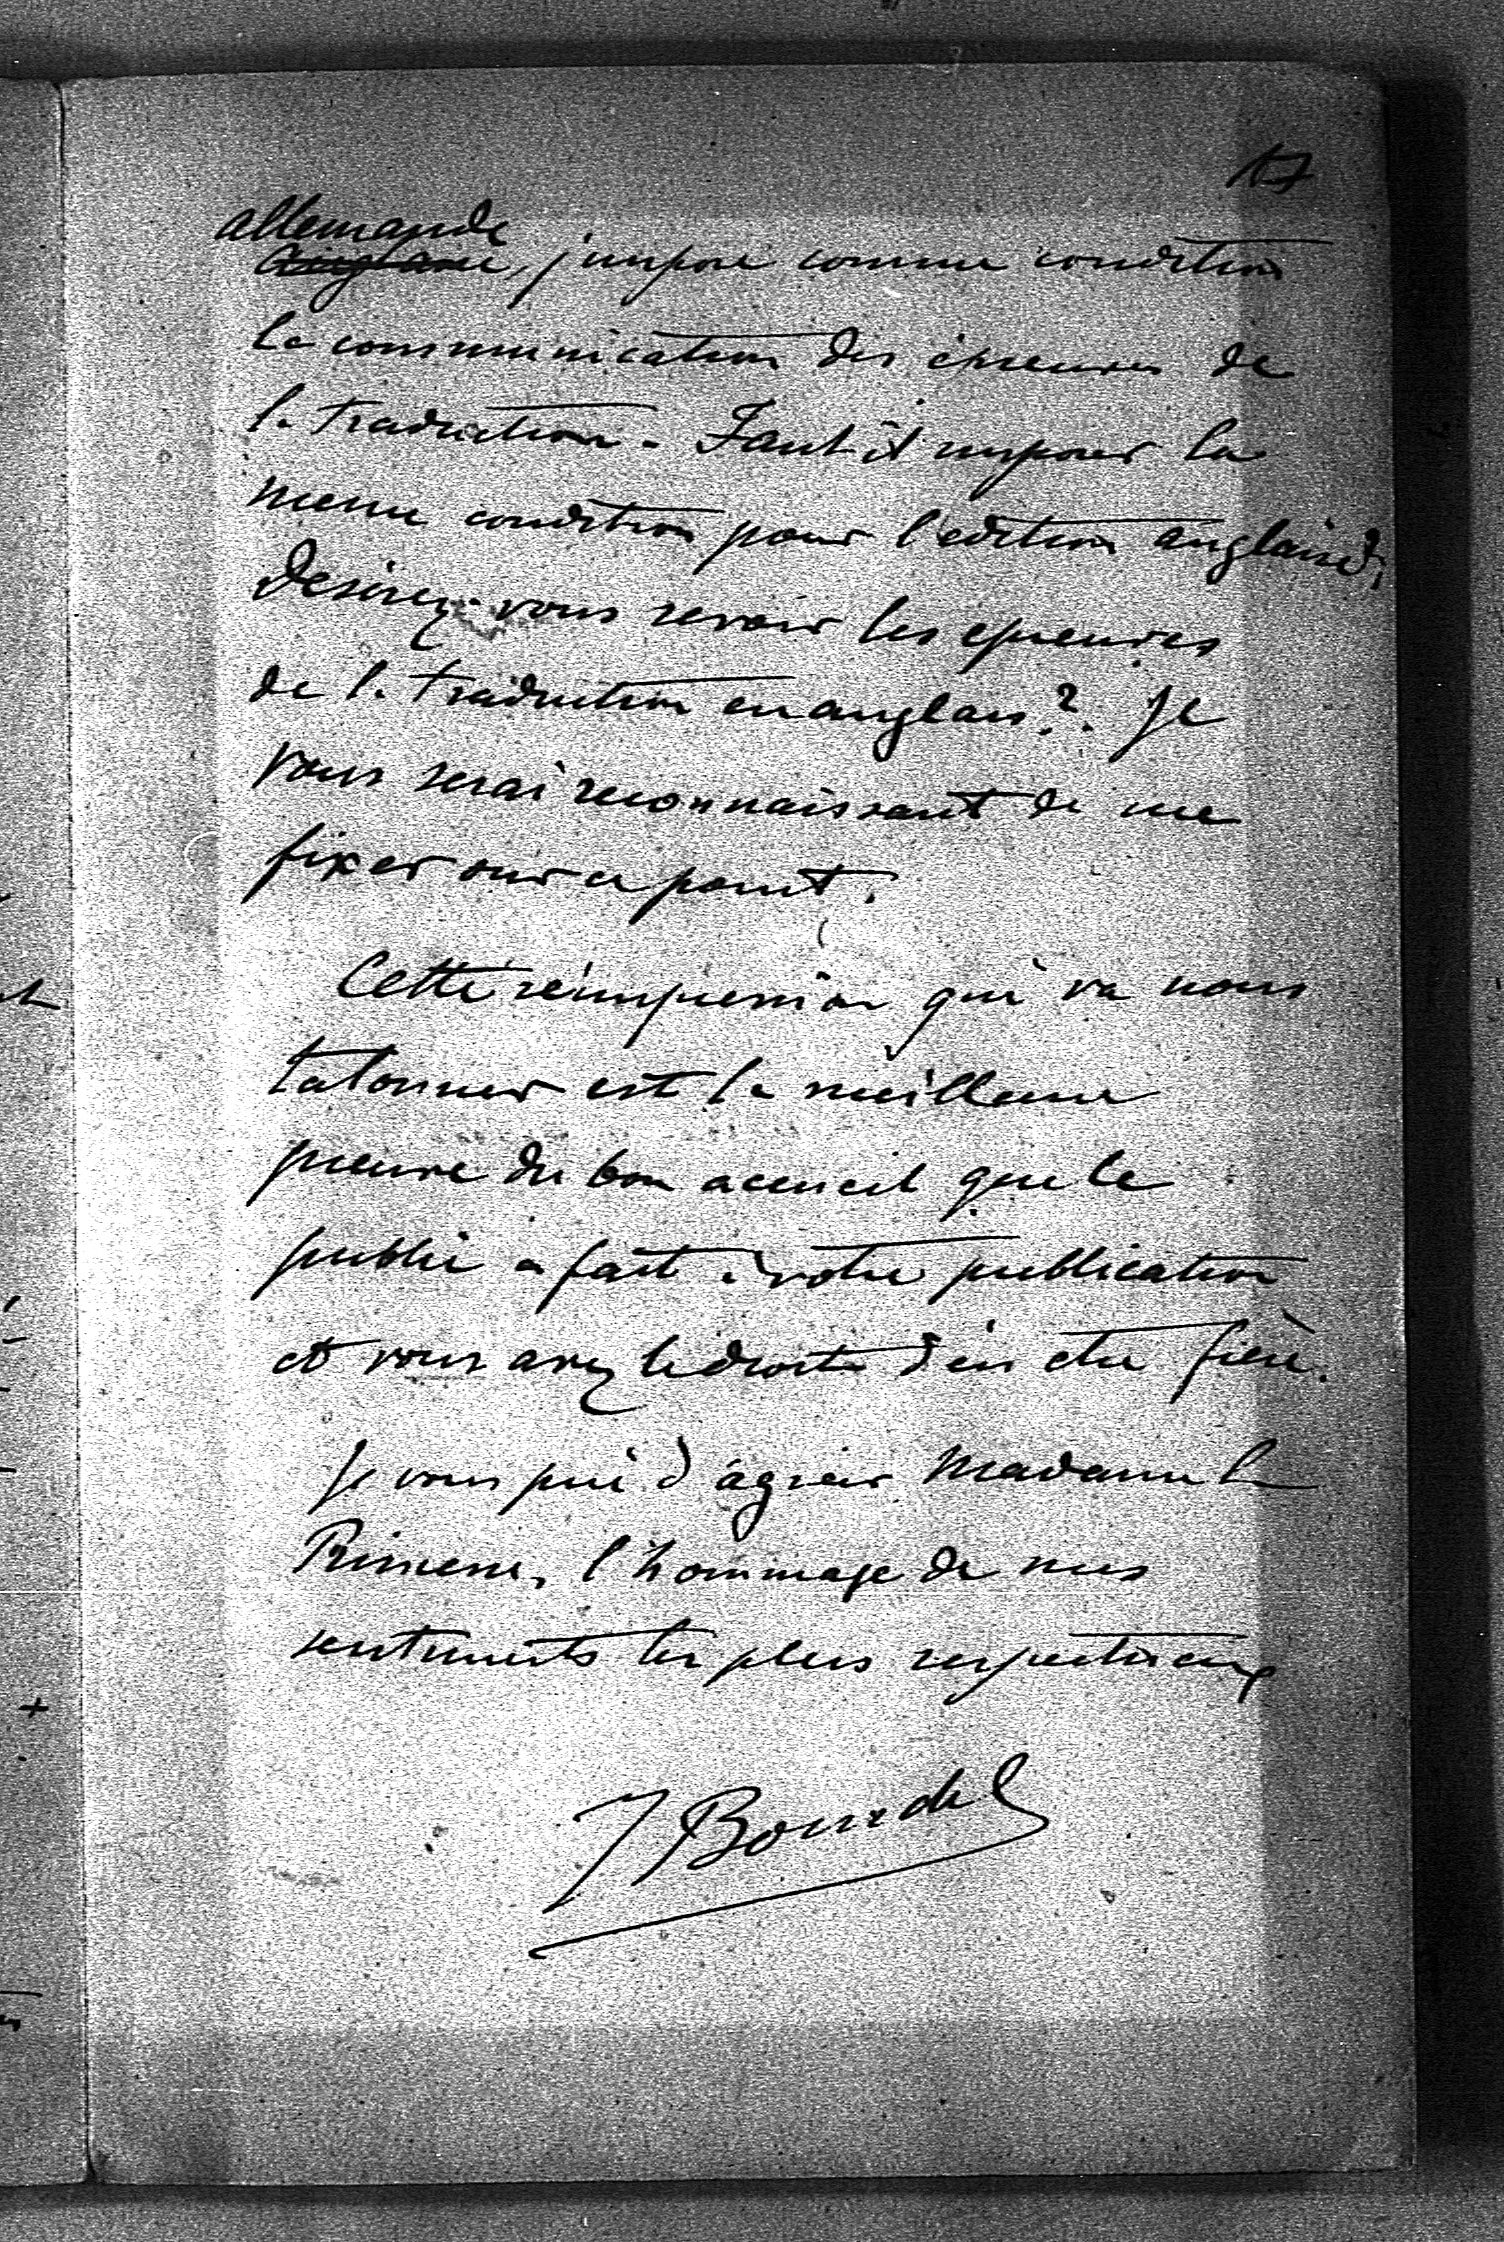 17
allemande
anglaise, j'impose comme condition
la communication des épreuves de
la traduction. Faut-il imposer la
meme condition pour l'edition anglaise,
Desirez-vous revoir les epreuves
de la traduction en anglais?. Je
vous serai reconnaissant de me
fixer sur ce point.
Cette réimpression qui va nous
talonner est la meilleure
preuve du bon accueil que le
public a fait à votre publication
et vous avez le droit d'en etre fière.
Je vous prie d'agréer Madame la
Princesse, l'hommage de mes
sentiments les plus respectueux
J Bourdel